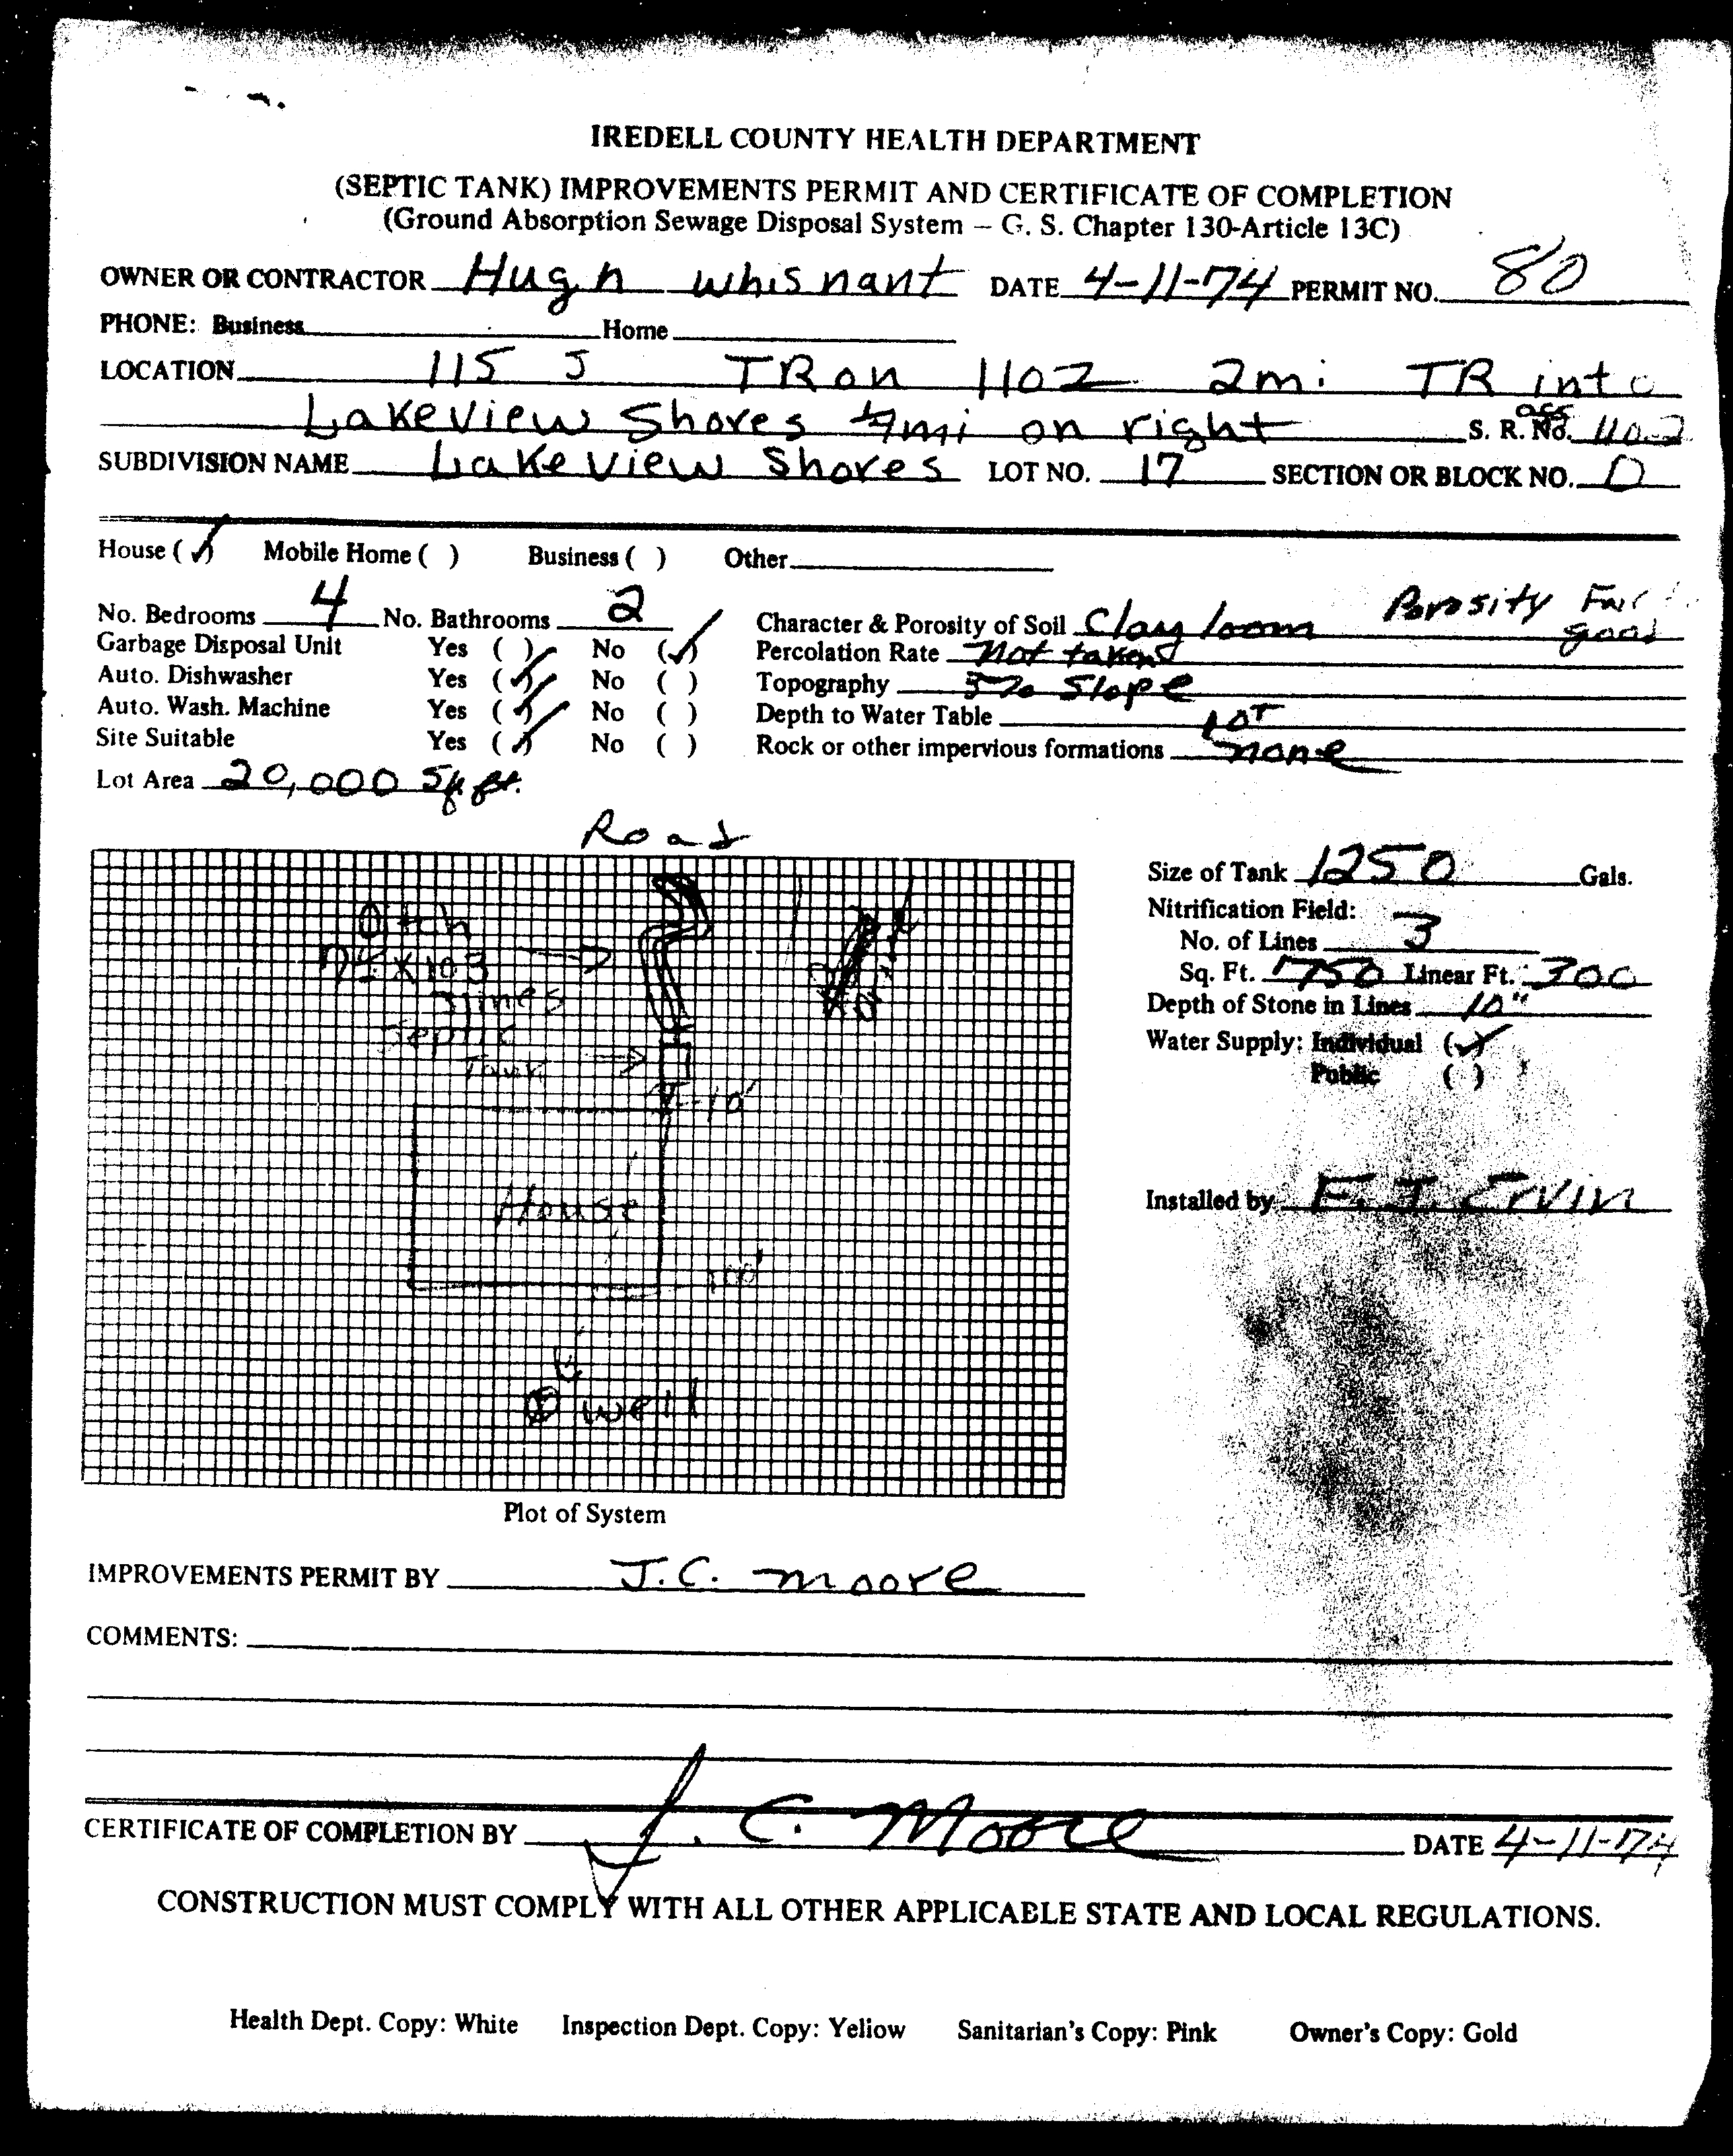 IREDELL COUNTY HEALTH DEPARTMENT
(SEPTIC TANK) IMPROVEMENTS PERMIT AND CERTIFICATE OF COMPLETION
(Ground Absorption Sewage Disposal System – G. S. Chapter 130-Article 13C)
OWNER OR CONTRACTOR Hugh Whisnant DATE 4-11-74 PERMIT NO. 80
PHONE: Business Home
LOCATION 115 J TR on 1102 2mi TR into
Lakeview Shores mi on right S. R. No. 1102
SUBDIVISION NAME Lakeview Shores LOT NO. 17 SECTION OR BLOCK NO. D
House (✓) Mobile Home ( ) Business ( ) Other
No. Bedrooms 4 No. Bathrooms 2 Character & Porosity of Soil Clay loam Porosity Fair good
Garbage Disposal Unit Yes ( ) No (✓) Percolation Rate Not taken
Auto. Dishwasher Yes (✓) No ( ) Topography 5% Slope
Auto. Wash. Machine Yes (✓) No ( ) Depth to Water Table
Site Suitable Yes (✓) No ( ) Rock or other impervious formations none
Lot Area 20,000 Sq. ft.
Road
Size of Tank 1250 Gals.
Nitrification Field:
No. of Lines 3
Sq. Ft. 1750 Linear Ft. 300
Depth of Stone in Lines 10"
Water Supply: Individual (✓)
Public ( )
Ditch
Septic
Tank
10'
House
100'
well
Installed by F. J. Ervin
Plot of System
IMPROVEMENTS PERMIT BY J.C. Moore
COMMENTS:
CERTIFICATE OF COMPLETION BY J. C. Moore DATE 4-11-74
CONSTRUCTION MUST COMPLY WITH ALL OTHER APPLICABLE STATE AND LOCAL REGULATIONS.
Health Dept. Copy: White Inspection Dept. Copy: Yellow Sanitarian's Copy: Pink Owner's Copy: Gold